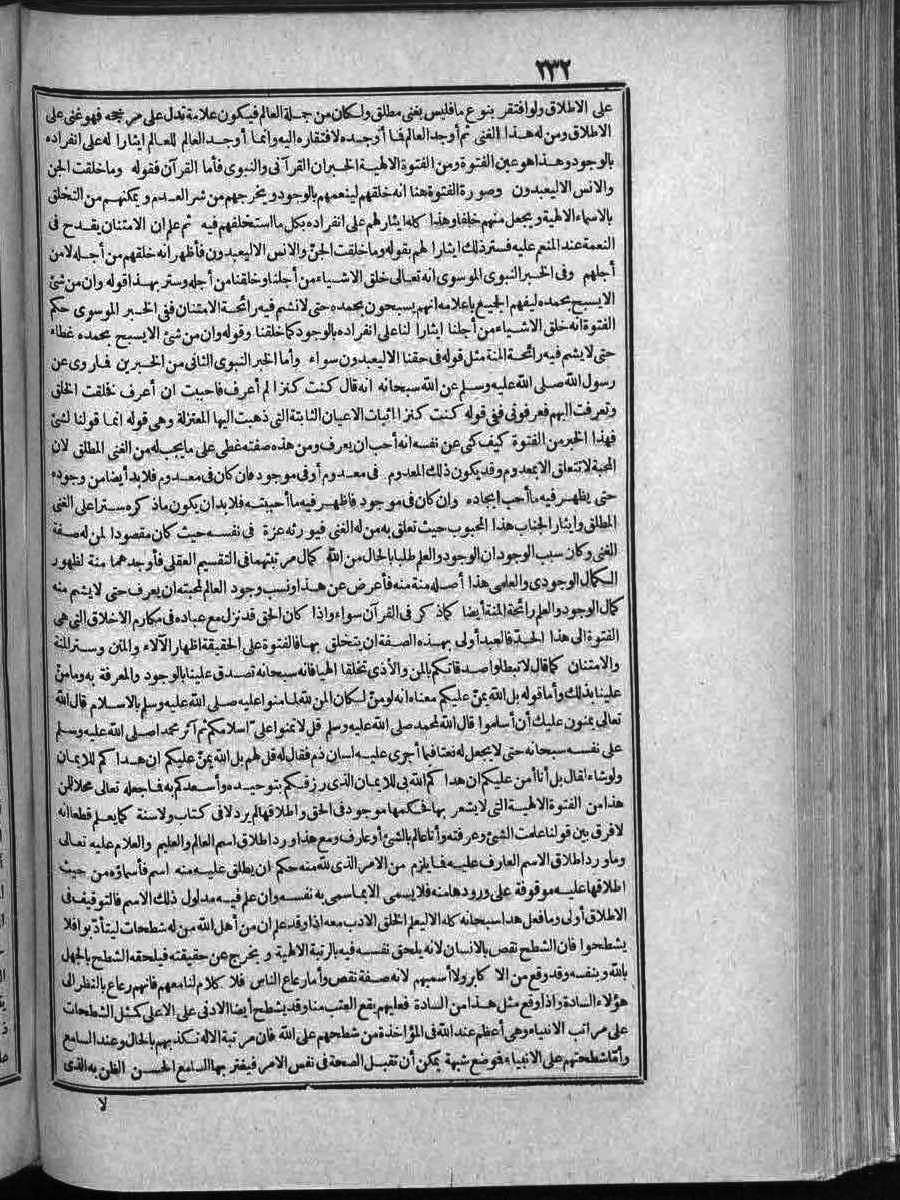 ٢٣٢
على الاطلاق ولو افتقر بنوع ما فليس بغنى مطلق ولكان من جملة العالم فيكون علامة تدل على مرجحه فهو غنى على
الاطلاق ومن له هذا الغنى ثم أوجد العالم فما أوجده لافتقاره اليه وانما أوجد العالم للعالم ايثارا له على انفراده
بالوجود وهذا هو عين الفتوة ومن الفتوة الالهية الخبران القرآنى والنبوى فأما القرآن فقوله وما خلقت الجن
والانس الا ليعبدون وصورة الفتوة هنا انه خلقهم لينعمهم بالوجود ويخرجهم من شر العدم ويمكنهم من التخلق
بالاسماء الالهية ويجعل منهم خلفا وهذا كله ايثار لهم على انفراده بكل ما استخلفهم فيه ثم علم ان الامتنان يقدح فى
النعمة عند المنعم عليه فستر ذلك ايثارا لهم بقوله وما خلقت الجن والانس الا ليعبدون فأظهر انه خلقهم من أجله لا من
أجلهم وفى الخبر النبوى الموسوى انه تعالى خلق الاشياء من أجلنا وخلقنا من أجله وستر بهذا قوله وان من شئ
الا يسبح بحمده ليفهم الجميع باعلامه انهم يسبحون بحمده حتى لا نشم فيه رائحة الامتنان ففى الخبر الموسوى حكم
الفتوة انه خلق الاشياء من أجلنا ايثارا لنا على انفراده بالوجود كما خلقنا وقوله وان من شئ الا يسبح بحمده غطاء
حتى لا يشم فيه رائحة المنة مثل قوله فى حقنا الا ليعبدون سواء وأما الخبر النبوى الثانى من الخبرين فما روى عن
رسول الله صلى الله عليه وسلم عن الله سبحانه انه قال كنت كنزا لم أعرف فاحببت ان أعرف فخلقت الخلق
وتعرفت اليهم فعرفونى ففى قوله كنت كنزا اثبات الاعيان الثابتة التى ذهبت اليها المعتزلة وهى قوله انما قولنا لشئ
فهذا الخبر من الفتوة كيف كنى عن نفسه انه أحب ان يعرف ومن هذه صفته غطى على ما يجب له من الغنى المطلق لان
المحبة لا تتعلق الا بمعدوم وقد يكون ذلك المعدوم فى معدوم أو فى موجود فان كان فى معدوم فلا بد أيضا من وجوده
حتى يظهر فيه ما أحب ايجاده وان كان فى موجود فاظهر فيه ما أحببته فلا بد ان يكون ما ذكره سترا على الغنى
المطلق وايثار الجناب هذا المحبوب حيث تعلق به من له الغنى فيورثه عزة فى نفسه حيث كان مقصودا لمن له صفة
الغنى وكان سبب الوجود ان الوجود والعلم طلبا بالحال من الله كمال مرتبتهما فى التقسيم العقلى فأوجدهما منة لظهور
الكمال الوجودى والعلمى هذا أصله منة منه فأعرض عن هذا ونسب وجود العالم لمحبته ان يعرف حتى لا يشم منه
كمال الوجود والعلم رائحة المنة أيضا كما ذكر فى القرآن سواء واذا كان الحق قد نزل مع عباده فى مكارم الاخلاق التى هى
الفتوة الى هذا الحد فالعبد أولى بهذه الصفة ان يتخلق بها فالفتوة على الحقيقة اظهار الآلاء والمنن وستر المنة
والامتنان كما قال لا تبطلوا صدقاتكم بالمن والأذى تخلقا الهيا فانه سبحانه تصدق علينا بالوجود والمعرفة به وما من
علينا بذلك وأما قوله بل الله يمن عليكم معناه انه لو من لكان المن لله لما منوا عليه صلى الله عليه وسلم بالاسلام قال الله
تعالى يمنون عليك أن أسلموا قال الله لمحمد صلى الله عليه وسلم قل لا تمنوا على اسلامكم ثم آثر محمدا صلى الله عليه وسلم
على نفسه سبحانه حتى لا يجعل له نعتا فيما أجرى عليه لسان ذم فقال له قل لهم بل الله يمن عليكم ان هداكم للايمان
ولو شاء لقال بل أنا أمن عليكم ان هداكم الله بى للايمان الذى رزقكم بتوحيده وأسعدكم به فاجعله تعالى محلا للمن
هذا من الفتوة الالهية التى لا يشعر بها فحكمها موجود فى الحق واطلاقها لم يرد لا فى كتاب ولا سنة كما يعلم قطعا انه
لا فرق بين قولنا علمت الشئ وعرفته وأنا عالم بالشئ أو عارف ومع هذا ورد اطلاق اسم العالم والعليم والعلام عليه تعالى
وما ورد اطلاق الاسم العارف عليه فما يلزم من الامر الذى لله منه حكم ان يطلق عليه منه اسم فأسماؤه من حيث
اطلاقها عليه موقوفة على ورودها منه فلا يسمى الا بما سمى به نفسه وان علم فيه مدلول ذلك الاسم فالتوقيف فى
الاطلاق أولى وما فعل هذا سبحانه كله الا ليعلم الخلق الادب معه اذ وقد علم ان من أهل الله من له شطحات ليتأدبوا فلا
يشطحوا فان الشطح نقص بالانسان لانه يلحق نفسه فيه بالرتبة الالهية ويخرج عن حقيقته فيلحقه الشطح بالجهل
بالله وبنفسه وقد وقع من الاكابر ولا أسميهم لانه صفة نقص وأما رعاع الناس فلا كلام لنا معهم فانهم رعاع بالنظر الى
هؤلاء السادة واذا وقع مثل هذا من السادة فعليهم يقع العتب منا وقد يشطح أيضا الادنى على الاعلى كمثل الشطحات
على مراتب الانبياء وهى أعظم عند الله فى المؤاخذة من شطحهم على الله فان مرتبة الاله تكذبهم بالحال وعند السامع
وأما شطحتهم على الانبياء فموضع شبهة يمكن أن تقبل الصحة فى نفس الامر فيغتر بها السامع الحسن الظن به الذى
لا